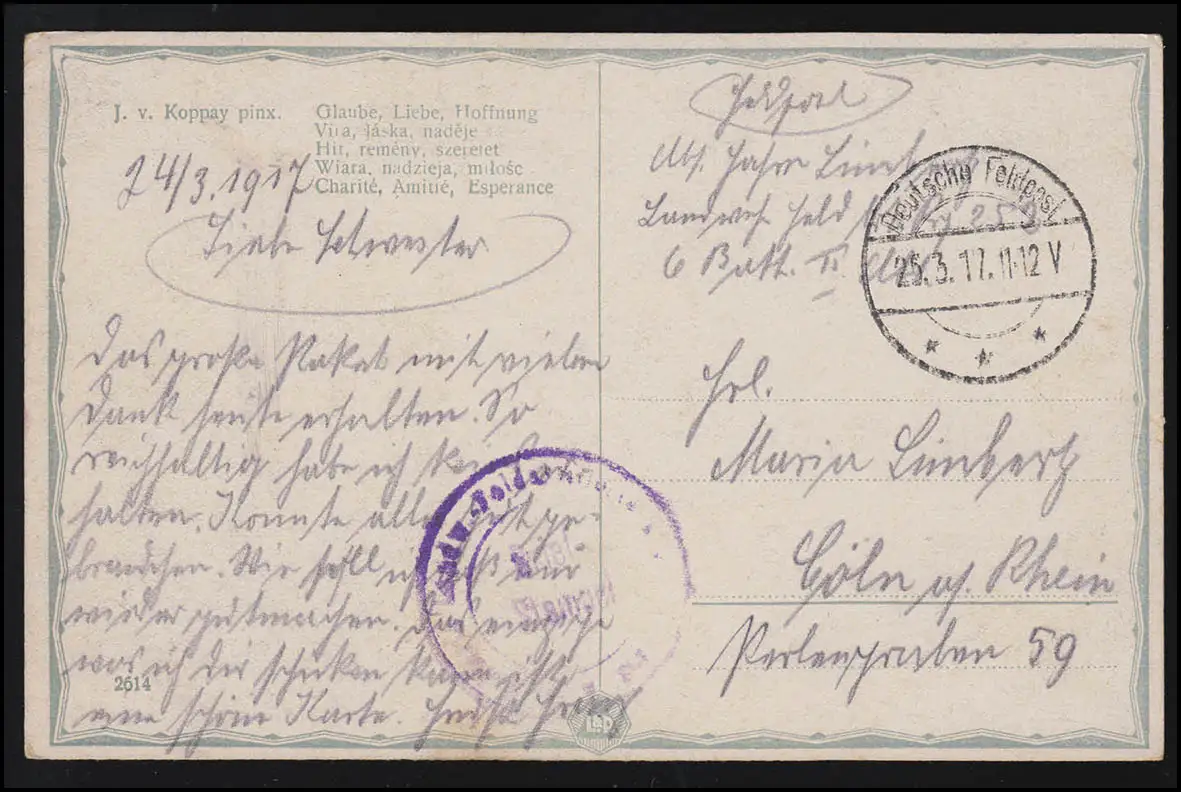 J. v. Koppay pinx.
Glaube, Liebe, Hoffnung
Víra, láska, naděje
Hit, remény, szeretet
Wiara, nadzieja, miłość
Charité, Amitié, Esperance
24/3.1917
Liebe Schwester
Das große Paket mit vielem
Dank heute erhalten. So
reichhaltig habe ich kein
halten. Konnte alles gut ge-
brauchen. Wie soll ich das nur
wieder gutmachen. Das einzige
was ich dir schicken kann ist
eine schöne Karte. Herzl.
2614
Feldpost
Abs.
Landwehr Feld
6 Batt. II
Deutsche Feldpost
25.3.17. 11-12 V
Frl.
Maria Limbertz
Cöln a/. Rhein
Perlengraben 59